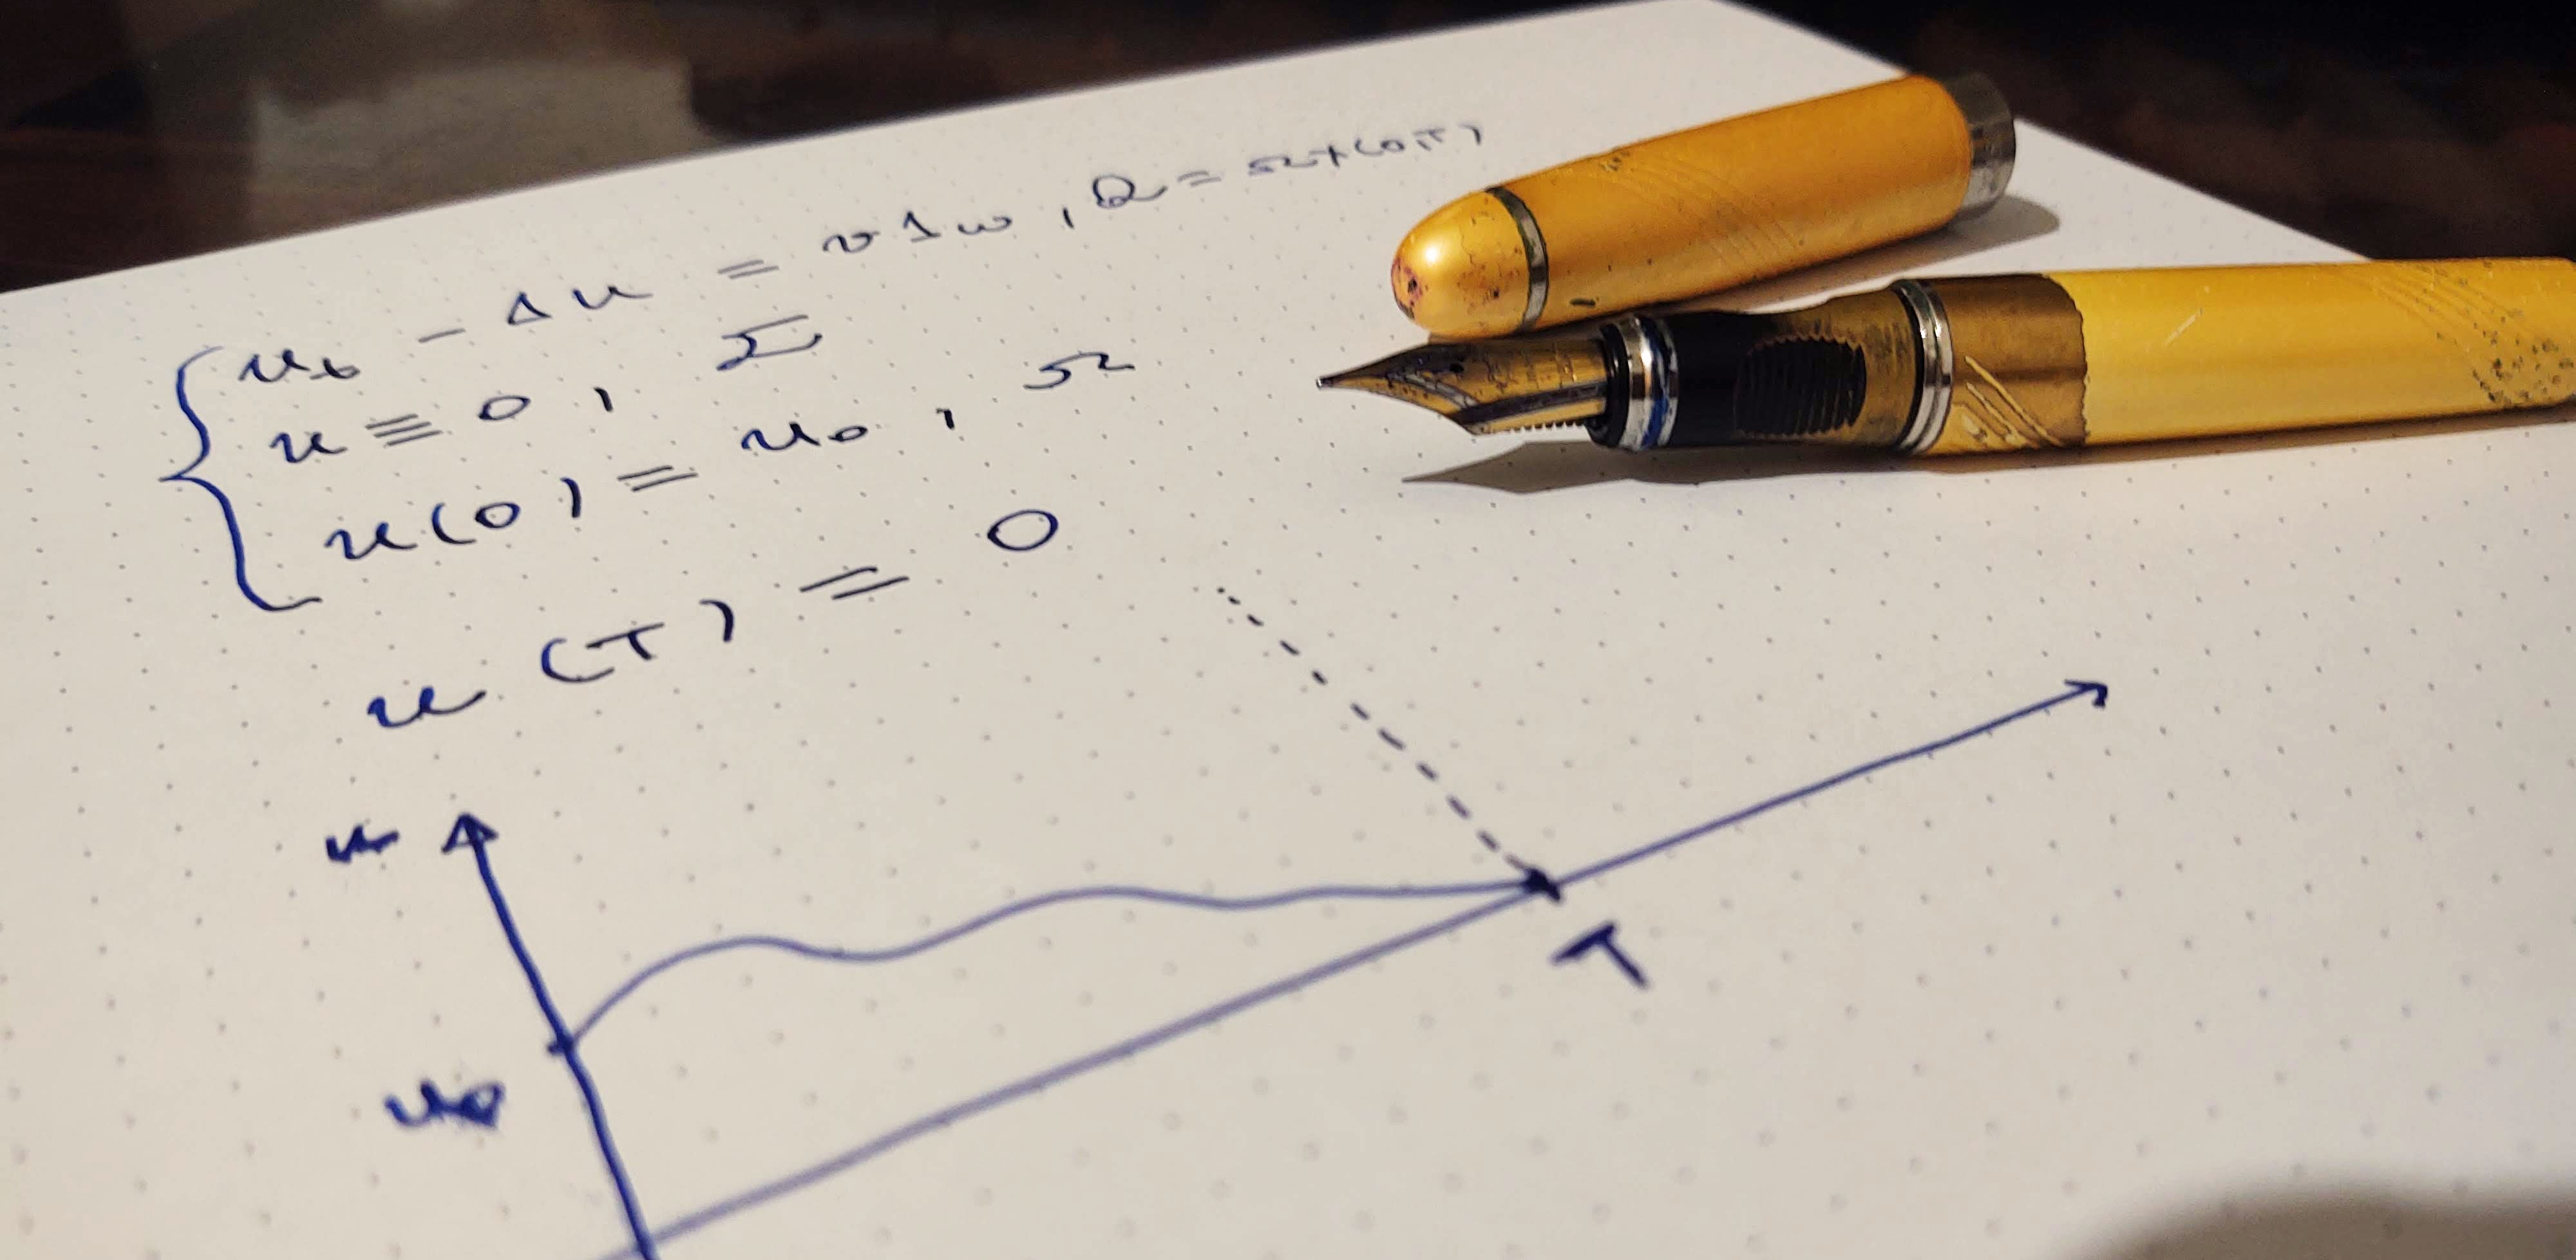 u_t - Δu = v1_ω, Q = Ω×(0T)
u ≡ 0, Σ
u(0) = u_0, Ω
u(T) = 0
u
T
u_0